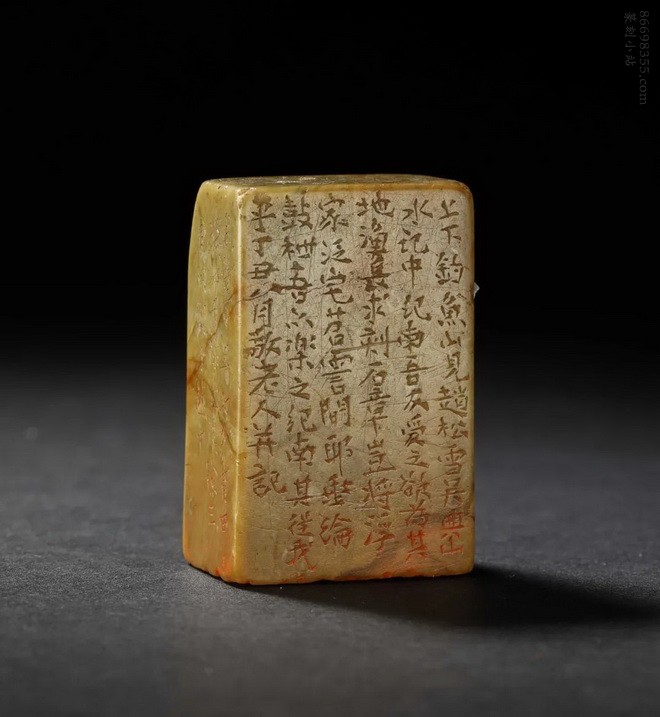 上下釣魚山見趙松雪吳興山
水記中紀南吾友愛之欲為其
地漁長求刻石章豈將浮
家泛宅苕霅間耶垂綸
鼓枻吾亦樂之紀南其從我
乎丁丑八月敬老人并記
86698355.com
篆刻小站